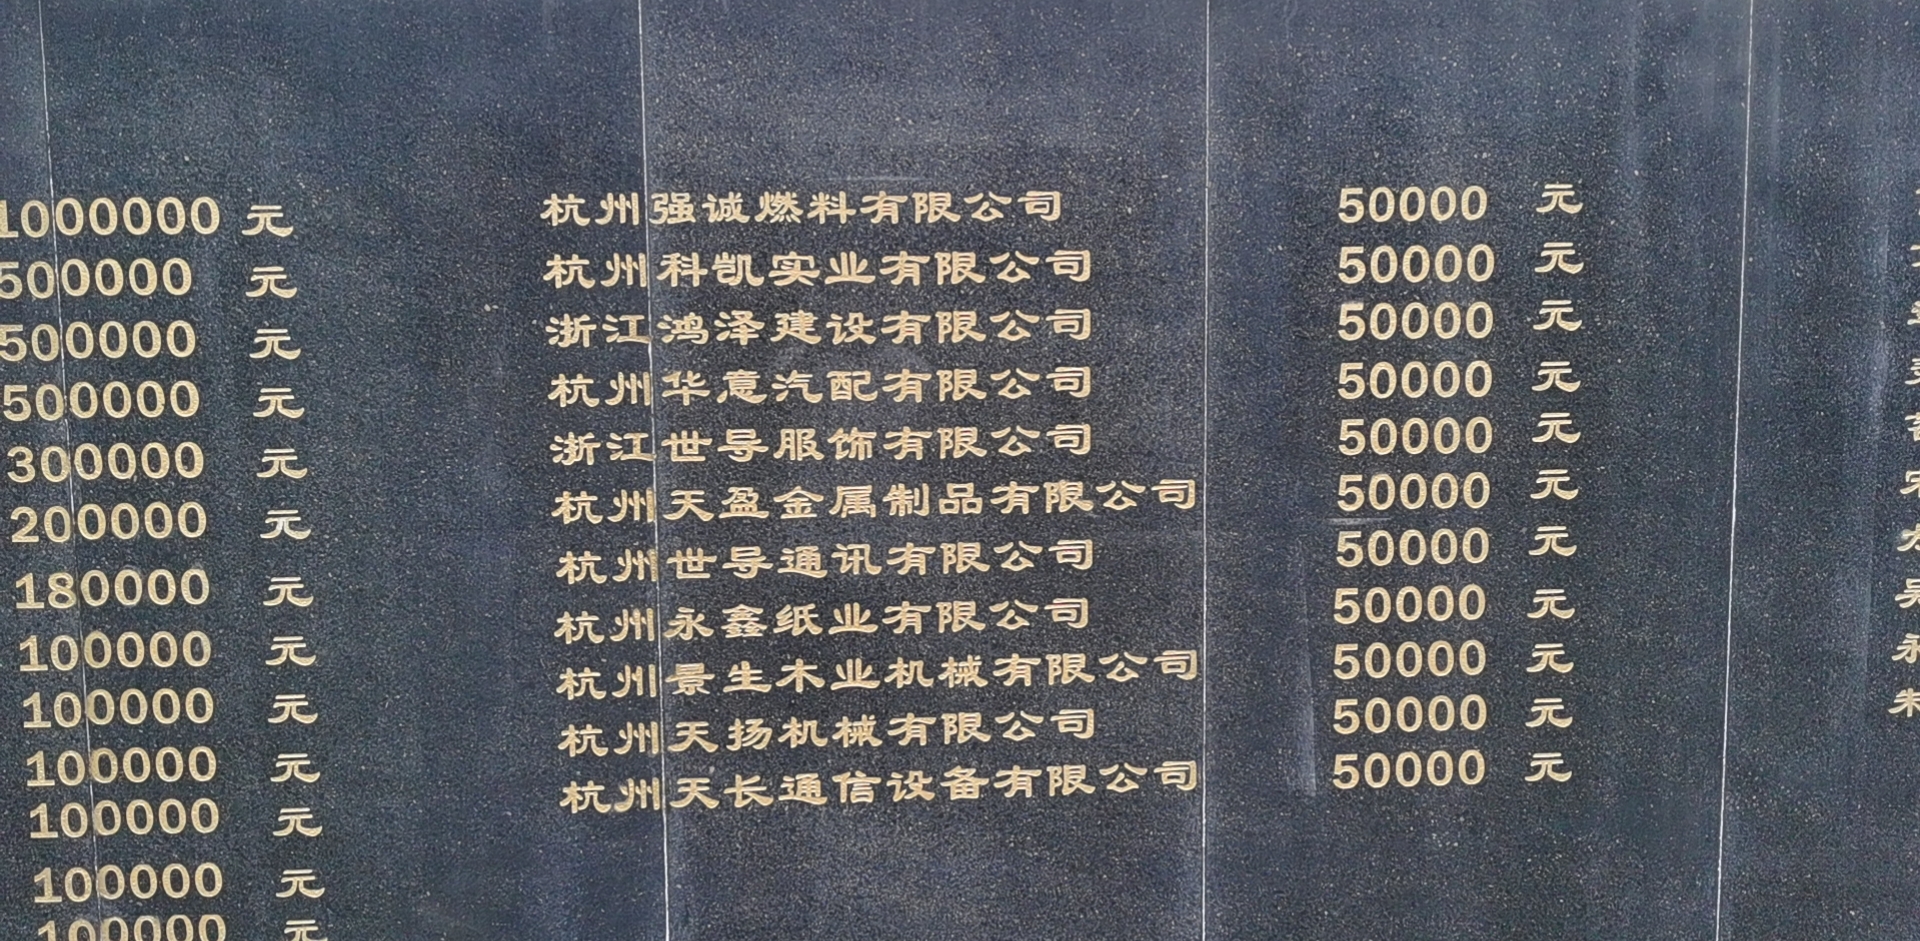 1000000 元
500000 元
500000 元
500000 元
300000 元
200000 元
180000 元
100000 元
100000 元
100000 元
100000 元
100000 元
100000 元
杭州强诚燃料有限公司 50000 元
杭州科凯实业有限公司 50000 元
浙江鸿泽建设有限公司 50000 元
杭州华意汽配有限公司 50000 元
浙江世导服饰有限公司 50000 元
杭州天盈金属制品有限公司 50000 元
杭州世导通讯有限公司 50000 元
杭州永鑫纸业有限公司 50000 元
杭州景生木业机械有限公司 50000 元
杭州天扬机械有限公司 50000 元
杭州天长通信设备有限公司 50000 元